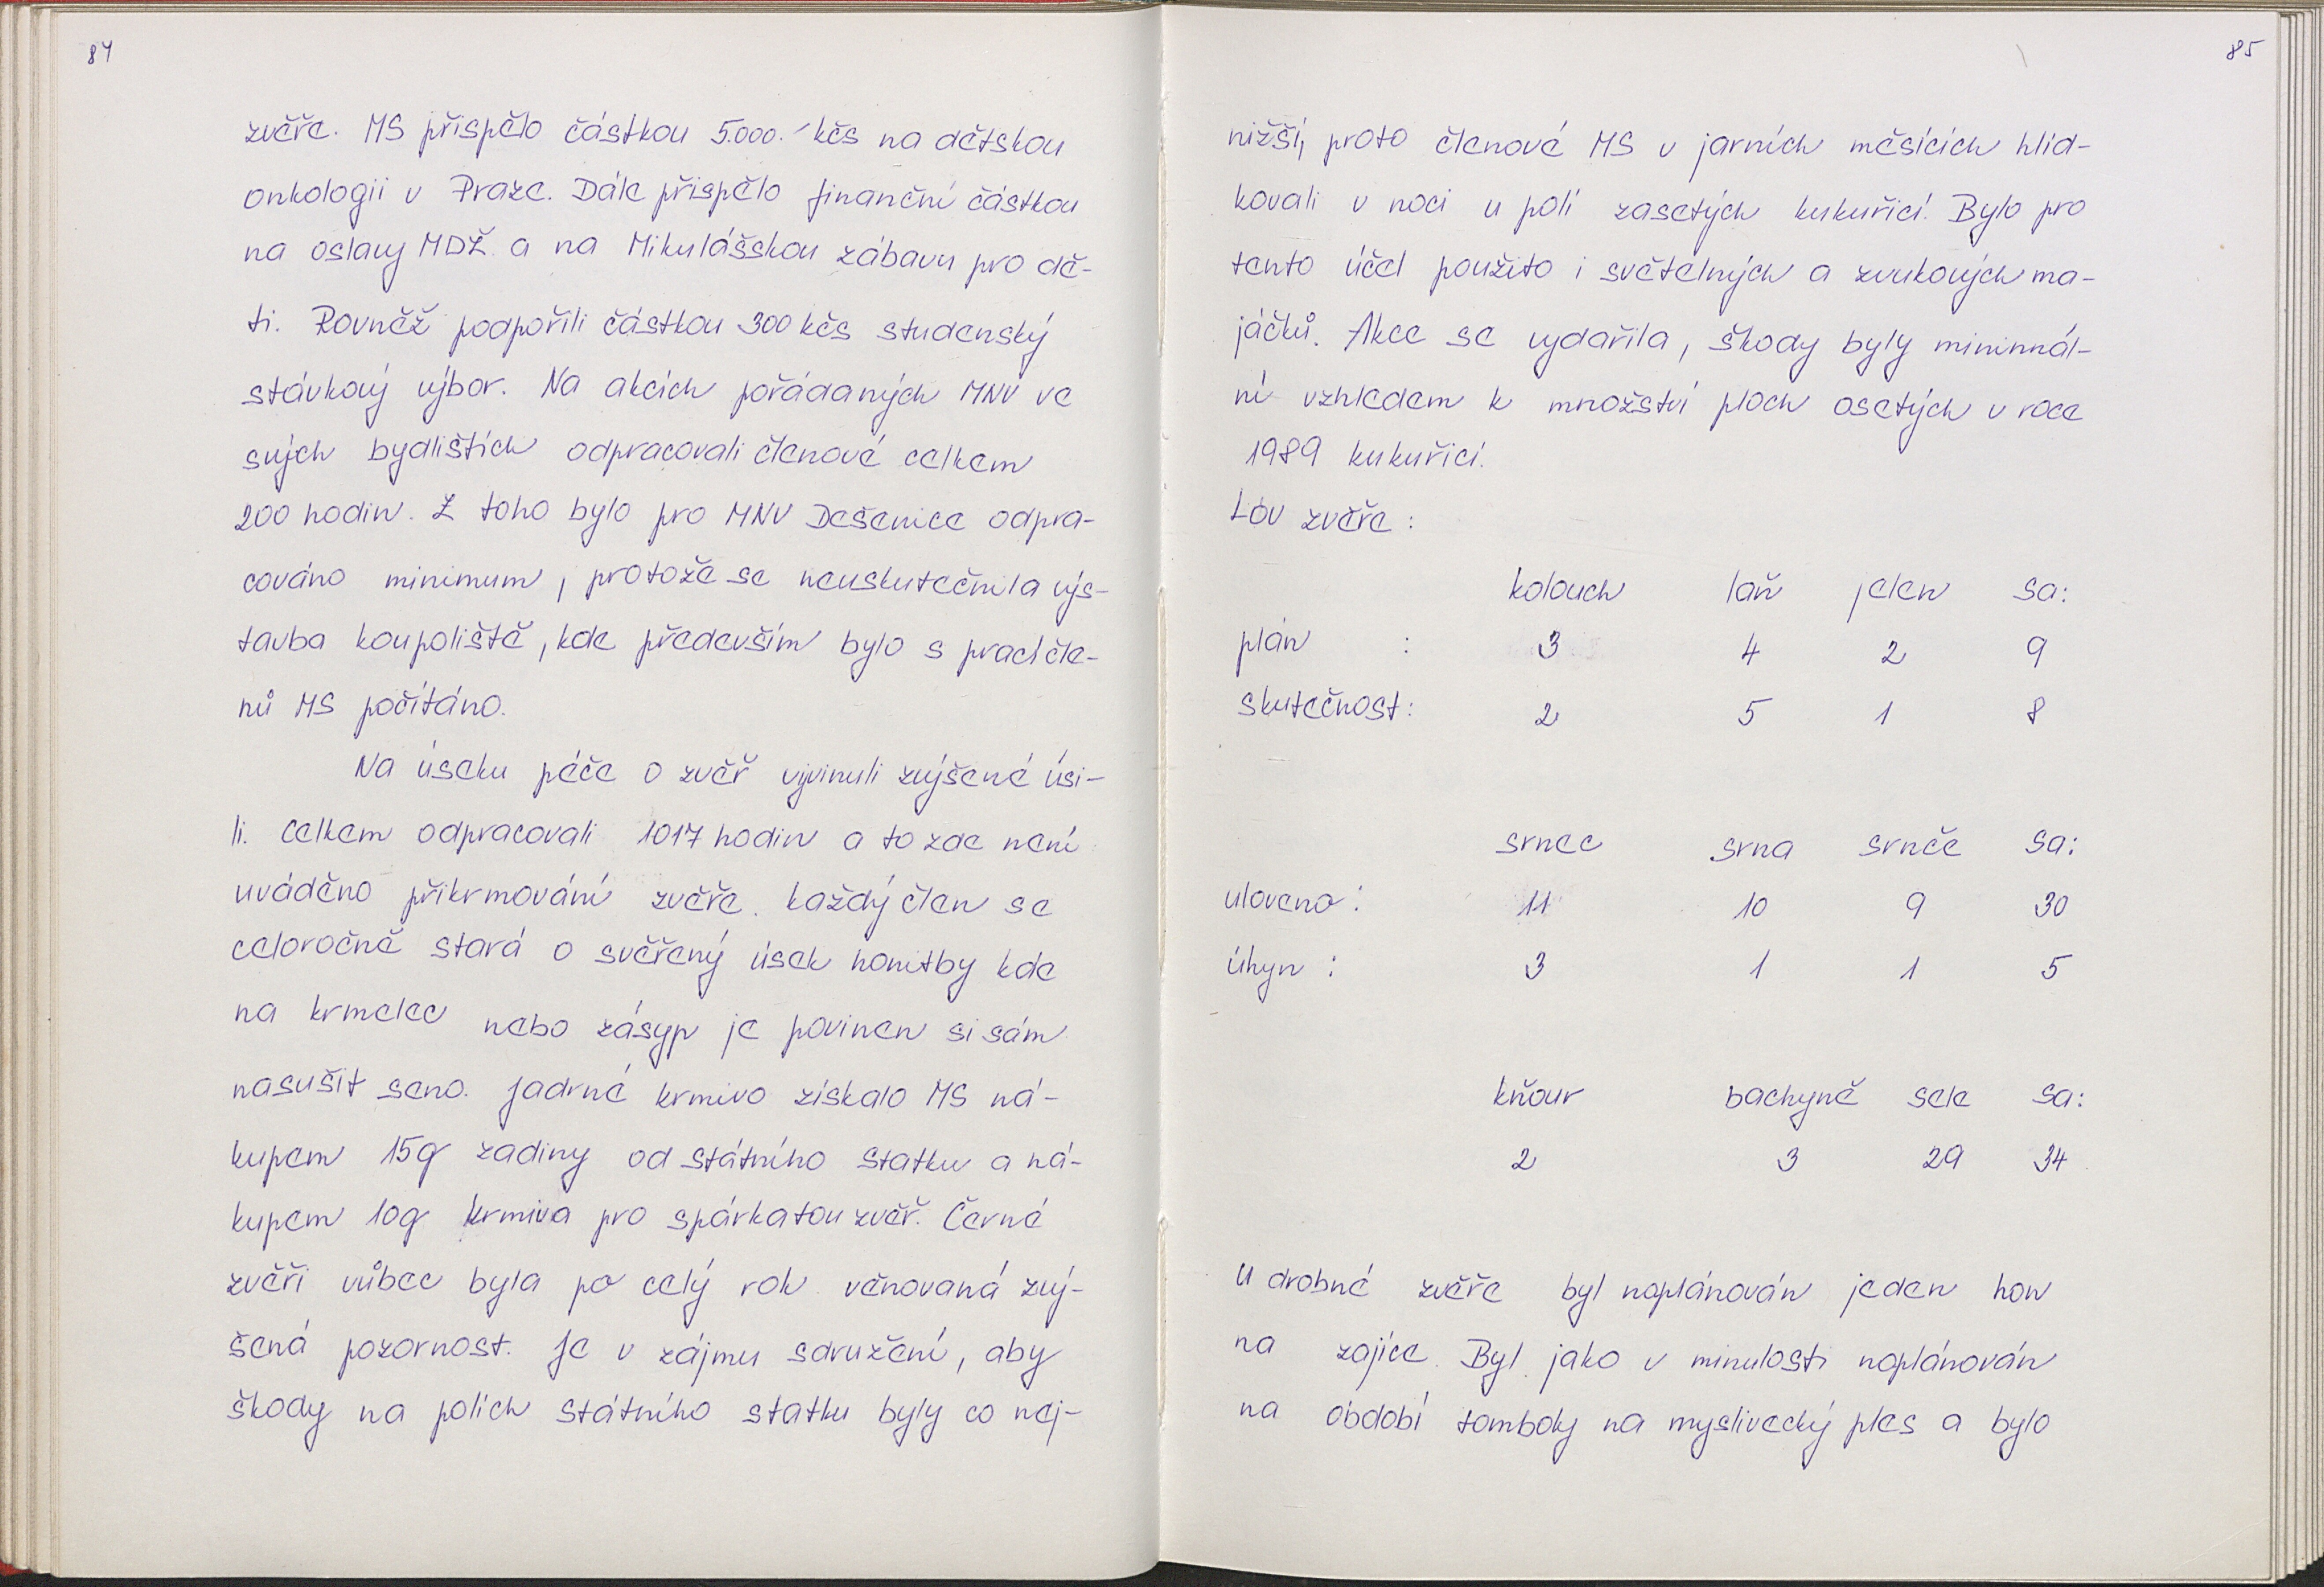 84
zvěře. MS přispělo částkou 5.000.- kčs na dětskou
onkologii v Praze. Dále přispělo finanční částkou
na oslavy MDŽ a na Mikulášskou zábavu pro dě-
ti. Rovněž podpořili částkou 300 kčs studenský
stávkový výbor. Na akcích pořádaných MNV ve
svých bydlištích odpracovali členové celkem
200 hodin. Z toho bylo pro MNV Dešenice odpra-
cováno minimum, protože se neuskutečnila výs-
tavba koupoliště, kde především bylo s prací čle-
nů MS počítáno.
Na úseku péče o zvěř vyvinuli zvýšené úsi-
lí. Celkem odpracovali 1017 hodin a to zde není
uváděno přikrmování zvěře. Každý člen se
celoročně stará o svěřený úsek honitby kde
na krmelec nebo zásyp je povinen si sám
nasušit seno. Jadrné krmivo získalo MS ná-
kupem 15q zadiny od státního statku a ná-
kupem 10q krmiva pro spárkatou zvěř. Černé
zvěři vůbec byla po celý rok věnovaná zvý-
šená pozornost. Je v zájmu sdružení, aby
škody na polích státního statku byly co nej-
85
nižší, proto členové MS v jarních měsících hlíd-
kovali v noci u polí zasetých kukuřicí. Bylo pro
tento účel použito i světelných a zvukových ma-
jáčků. Akce se vydařila, škody byly mininnál-
ní vzhledem k množství ploch osetých v roce
1989 kukuřicí.
Lov zvěře:
kolouch laň jelen Sa:
plán : 3 4 2 9
skutečnost: 2 5 1 8
srnec srna srnče Sa:
uloveno: 11 10 9 30
úhyn : 3 1 1 5
kňour bachyně sele Sa:
2 3 29 34
U drobné zvěře byl naplánován jeden hon
na zajíce. Byl jako v minulosti naplánován
na období tomboly na myslivecký ples a bylo